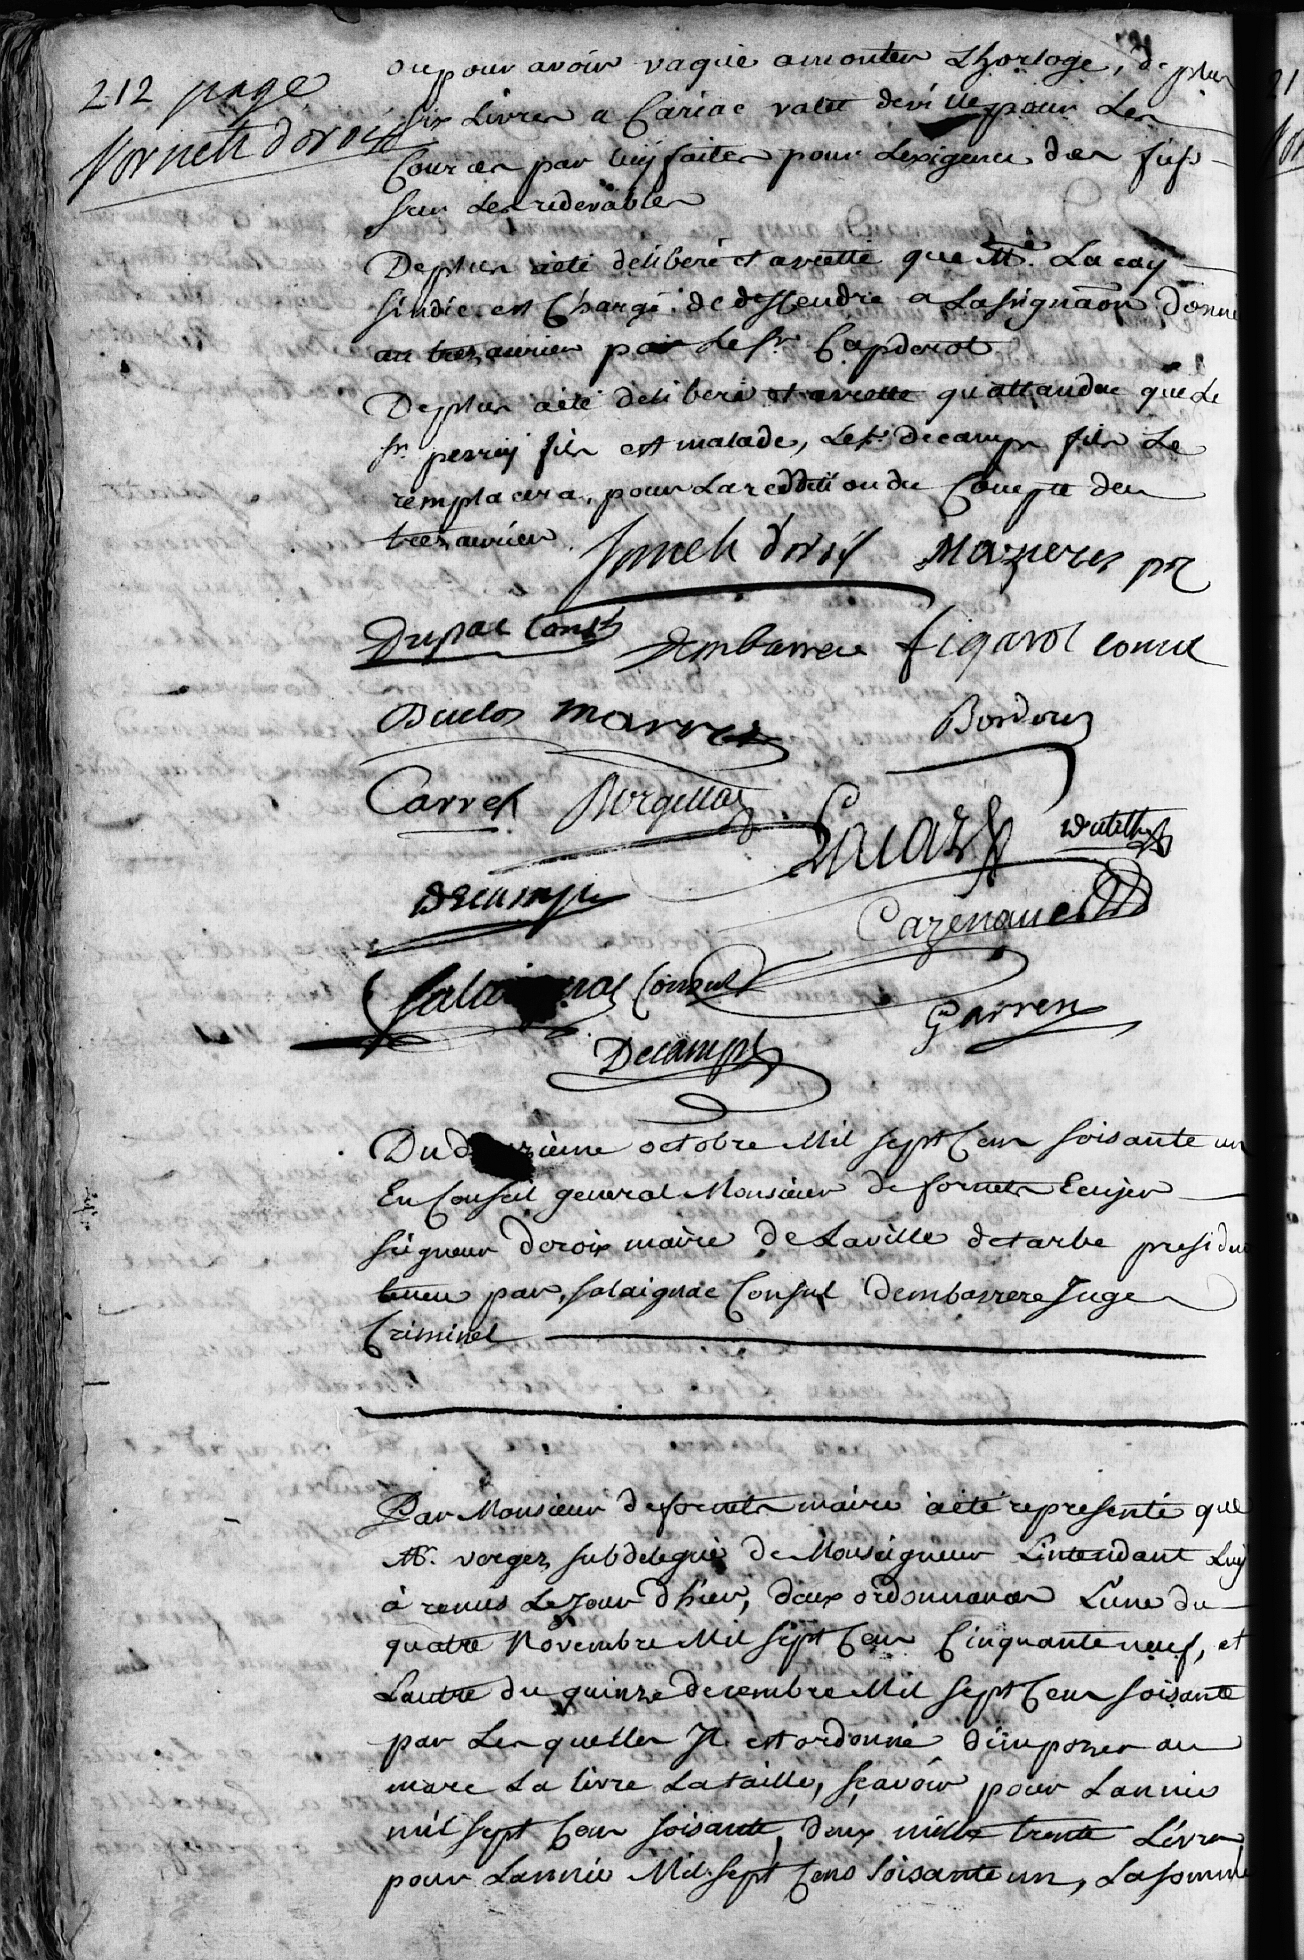 212 page
fornets doroix
ou pour avoir vaqué a monter Lhorloge, de plus
six Livres a Cariac valet deville pour Les
Courses par luy faites pour Lexigence des fiefs
sur Les redevables
De plus aété délibéré et arretté que Mr. Lacay
sindic est Chargé de deffendre a Lassignaõn donné
au trezaurier par le Sr. Capderot
De plus aété délibéré et arretté qu'attandue que Le
Sr. perrey fils est malade, Le Sr. decamps fils Le
remplacera, pour La reddition du Compte des
trezaurier. fornets d'oroix Mazieres pr
Dupac Consl Dembarrere figarol consul
Duclos marres Bordere
Carrer Borgella
Lacay
decamps
Cazenave
Salaignac Consul
Garren
Decamps
Du d ième octobre Mil sept Cens soisante un
En Conseil general Monsieur de fornets Ecuyer
seigneur doroix maire de Laville detarbe president
tenu par, salaignac Consul Dembarrere Juge
Criminel
Par Monsieur de fornets maire aété representé que
Mr. vergez subdelegué de Monseigneur Lintendant Luy
à remis Le Jour d'hier, deux ordonnances L'une du
quatre Novembre Mil sept Cens Cinquante neuf, et
Lautre du quinze decembre Mil sept Cens soisante
par Les quelles Il est ordonné d'imposer au
marc La livre La taille, sçavoir pour Lannée
mil sept Cens soisante, deux mille trente Livres
pour Lannée Mil sept Cens soisante un, La somme